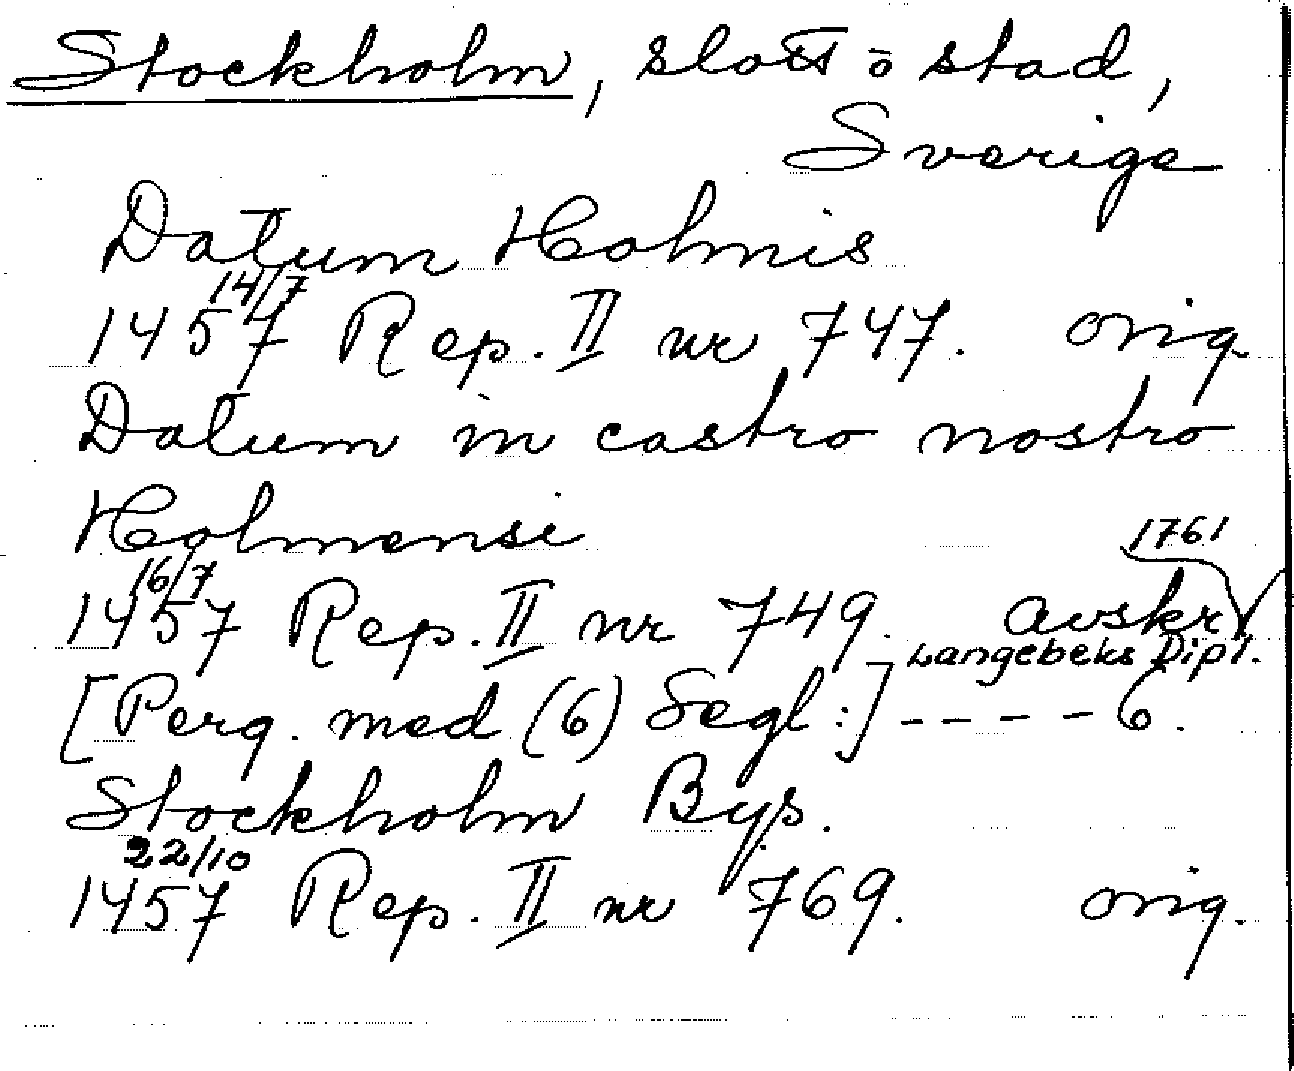 Stockholm, slott ō stad,
Sverige
Datum Holmis
14/7
1457 Rep. II nr 747. orig.
Datum in castro nostro
Holmensi
1761
16/7
1457 Rep. II nr 749. avskr
Langebeks Dipl.
[Perg. med (6) Segl:] - - - - 6.
Stockholm Bys.
22/10
1457 Rep. II nr 769. orig.